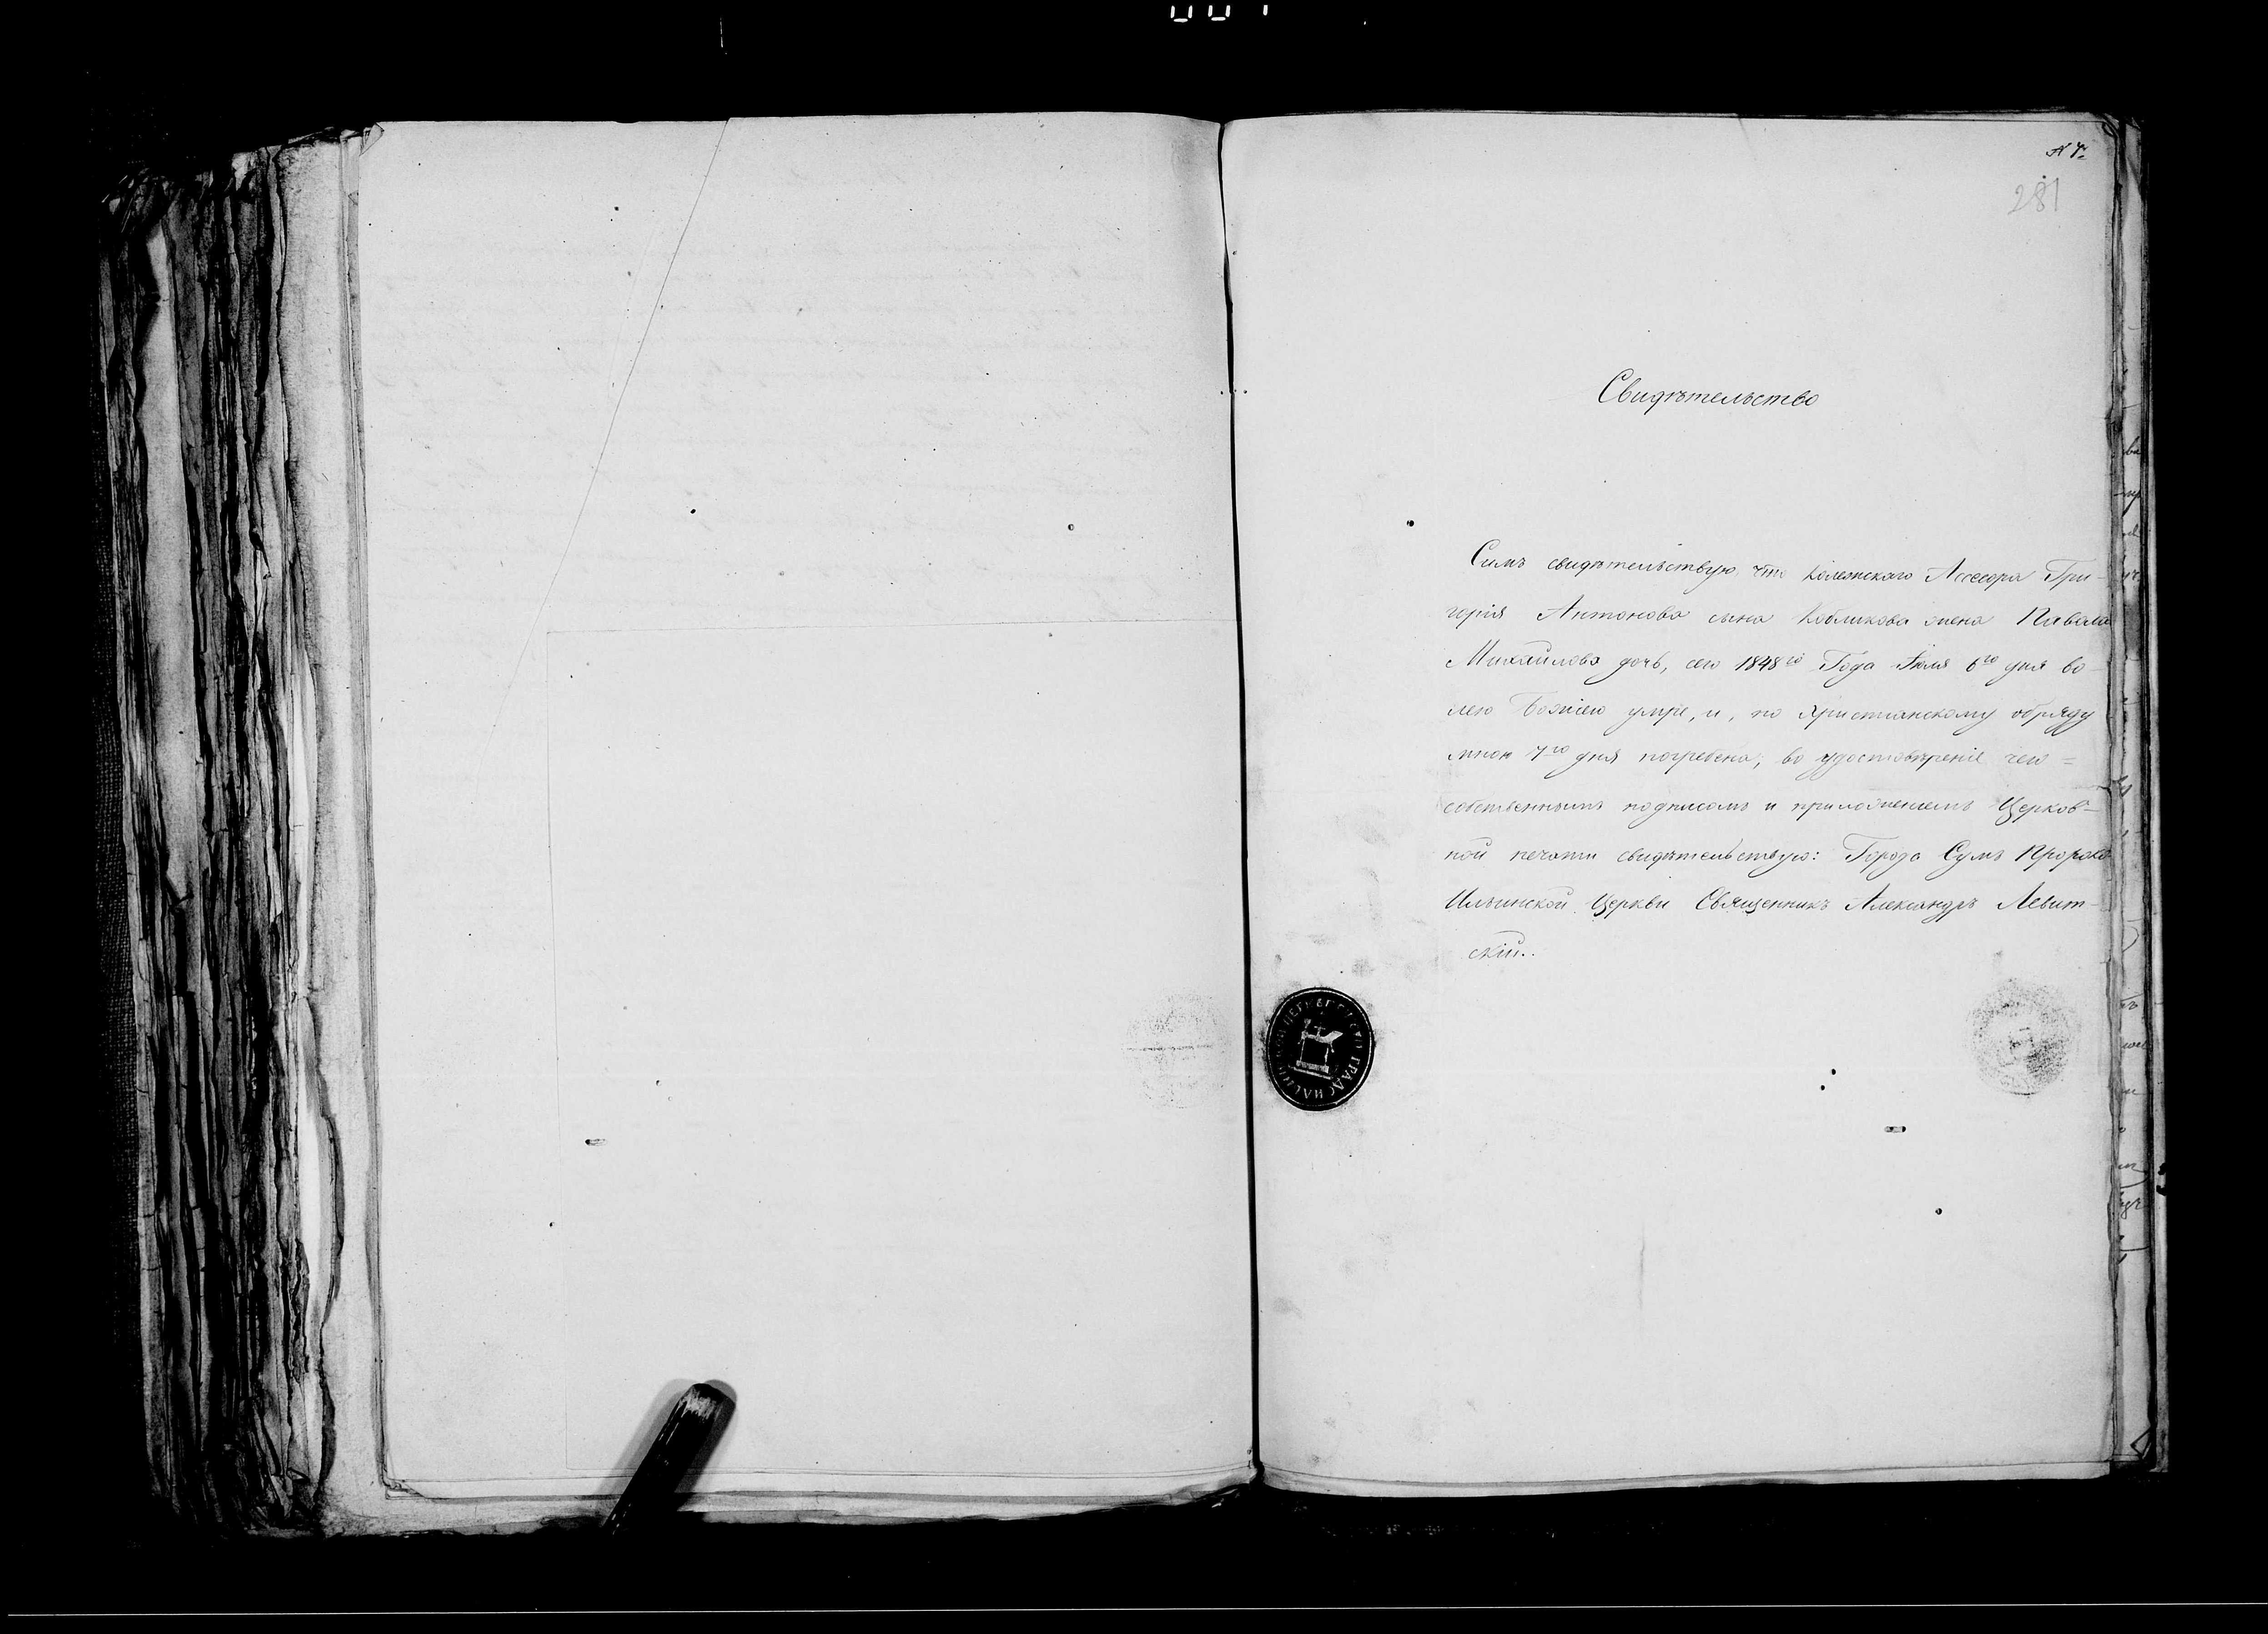 281
Свидѣтельство
Симъ свидѣтельствую что Колежскаго Ассесора Гри-
горія Антонова сына Кобликова жена
Михайлова дочь, сего 1848го Года Іюля 6го дня во
лею Божіею умре, и, по христіанскому обряду
мною 7го дня погребена; во удостовѣреніе чего =
собственнымъ подписомъ и приложеніемъ Церков-
ной печати свидѣтельствую: Города Сумъ Пророко
Ильинской Церкви Священникъ Александръ Левит-
скій..